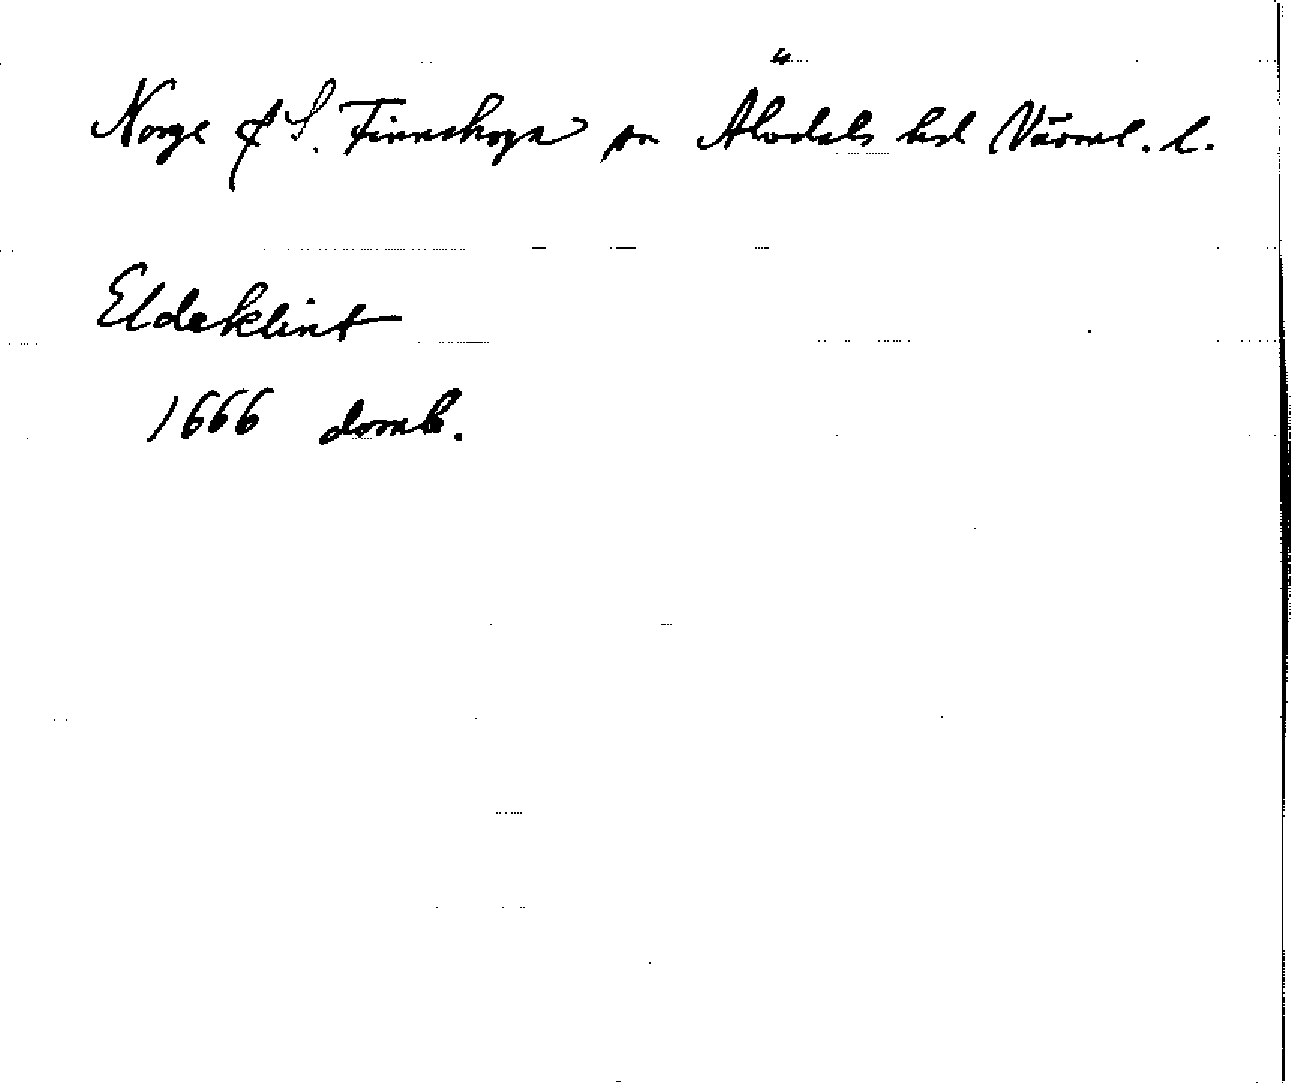 Norge f S. Finnskoga sn Älvdals hd Värml. l.
Eldaklint
1666 domb.